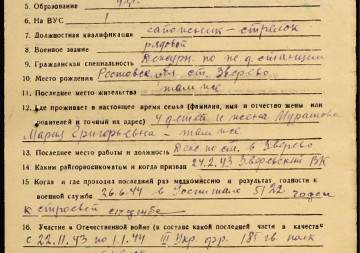 5. Образование
6. На ВУС 1
7. Должностная квалификация сапожник - стрелок
8. Военное звание рядовой
9. Гражданская специальность Дежурн. по ж. д. станции
10. Место рождения Ростовск. обл. ст. Зверево
11. Последнее место жительства там же
12. Где проживает в настоящее время семья (фамилия, имя и отчество жены или
родителей и точный их адрес) 4 детей и жена Муратова
Мария Григорьевна - там же
13. Последнее место работы и должность Деж. по ст. в Зверево
14. Каким райгорвоенкоматом и когда призван 24.2.43 Зверевский ВК
15. Когда и где проходил последний раз медкомиссию и результат годности к
военной службе 26.6.44 в госпитале 5122 годен
к строевой службе
16. Участие в Отечественной войне (в составе какой последней части в качестве
с 22.11.43 по 1.1.44 III Укр. фр. 185 гв. полк